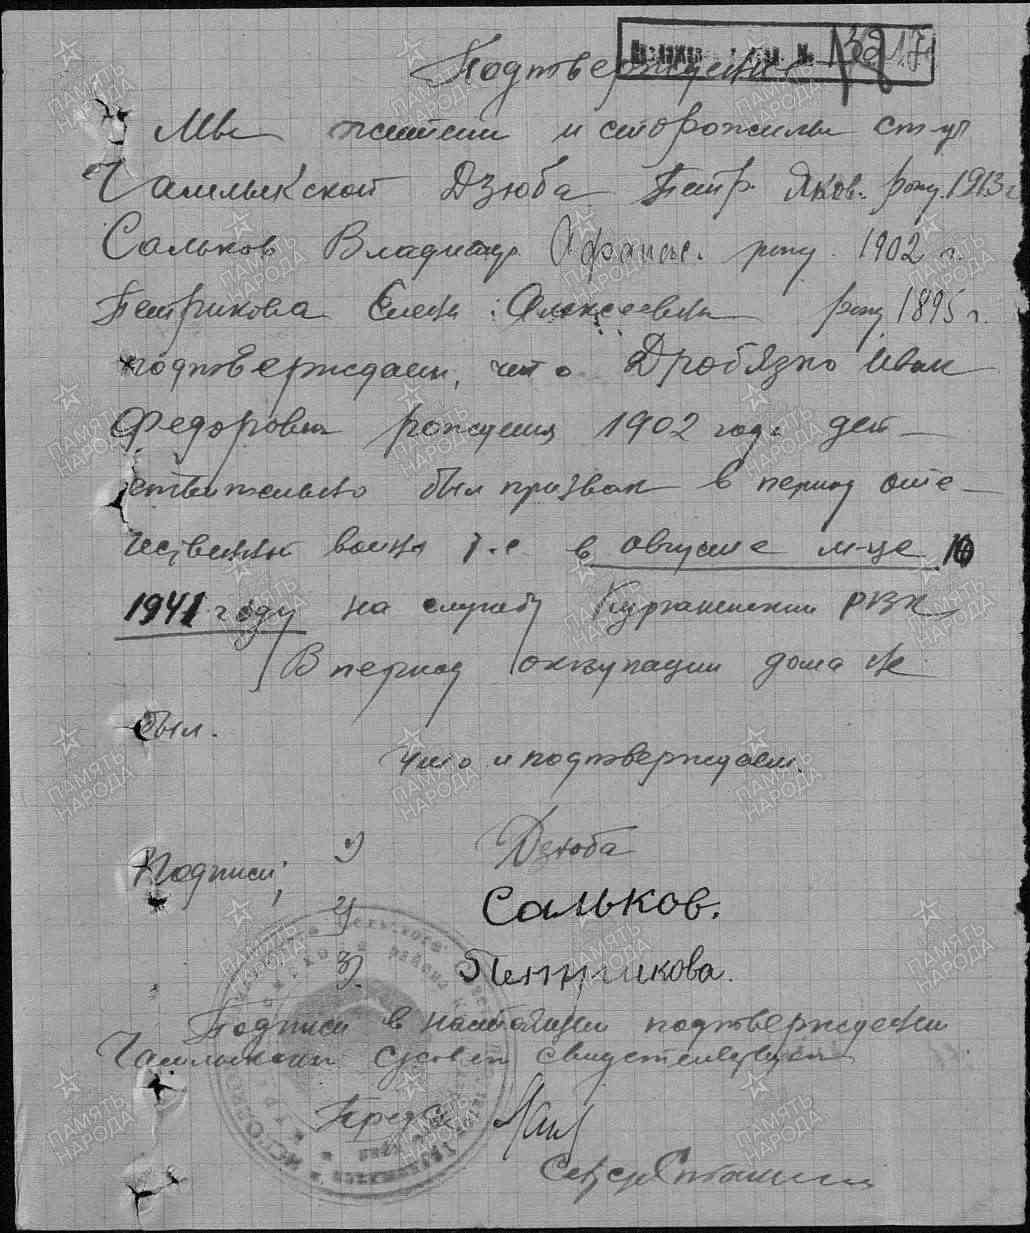 Подтверждение
Мы жители и старожилы ст-цы
Чамлыкской Дзюба Петр Яков. рожд. 1913 г
Сальков Владимир Афанас. рожд. 1902 г.
Петрикова Елена Алексеевна рожд 1895 г.
подтверждаем, что Дробязко Иван
Федорович рождения 1902 года дей-
ствительно был призван в период оте-
чественной войны т.е в августе м-це
1941 году на службу Курганинским РВК
В период оккупации дома не
был.
Что и подтверждаем.
Подписи: 1) Дзюба
2) Сальков.
3) Петрикова.
Подписи в настоящем подтверждении
Чамлыкский с/совет свидетельствует
Пред с/с
Секр
ПАМЯТЬ НАРОДА